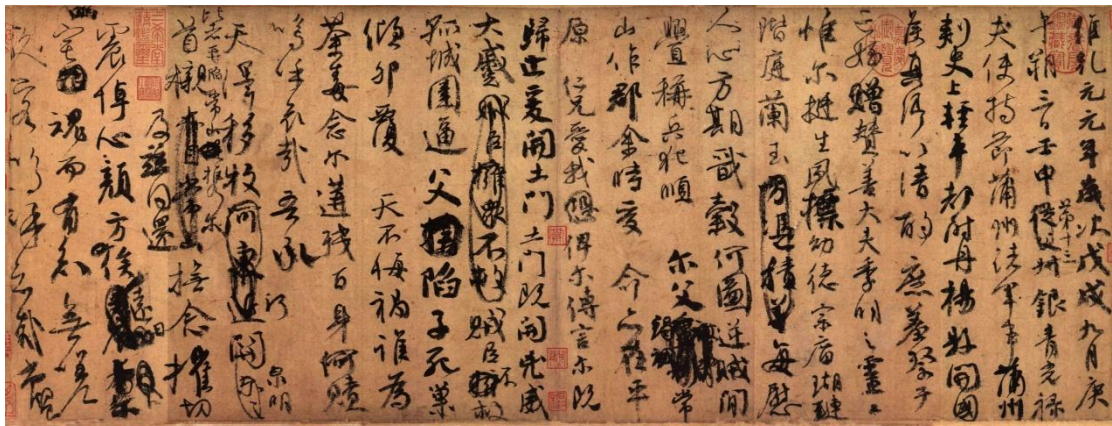 維乾元元年歲次戊戌九月庚
午朔三日壬申第十三叔銀青光祿
夫使持節蒲州諸軍事蒲州
刺史上輕車都尉丹楊縣開國
侯真卿以清酌庶羞祭于
亡姪贈贊善大夫季明之靈曰
惟爾挺生夙標幼德宗廟瑚璉
階庭蘭玉每慰
人心方期戩穀何圖逆賊間
釁稱兵犯順爾父竭誠常
山作郡余時受命亦在平
原仁兄愛我俾爾傳言爾既
歸止爰開土門土門既開凶威
大蹙賊臣不救
孤城圍逼父陷子死巢
傾卵覆天不悔禍誰為
荼毒念爾遘殘百身何贖
嗚乎哀哉吾承
天澤移牧河關泉明
比者再陷常山攜爾
首櫬及茲同還撫念摧切
震悼心顏方俟遠日
宅魂而有知無嗟
久客嗚呼哀哉尚饗